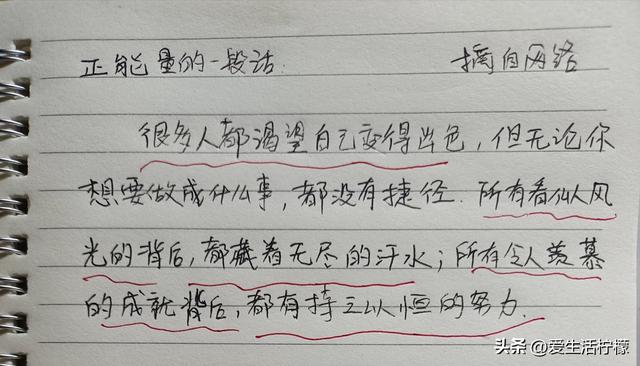 正能量的一段话.    摘自网络
很多人都渴望自己变得出色，但无论你
想要做成什么事，都没有捷径.所有看似风
光的背后，都藏着无尽的汗水；所有令人羡慕
的成就背后，都有持之以恒的努力.
头条 @爱生活柠檬